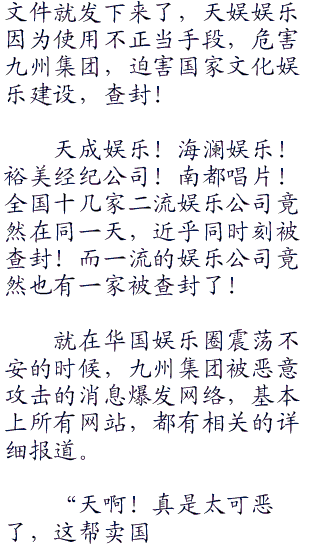 文件就发下来了，天娱娱乐
因为使用不正当手段，危害
九州集团，迫害国家文化娱
乐建设，查封！
天成娱乐！海澜娱乐！
裕美经纪公司！南都唱片！
全国十几家二流娱乐公司竟
然在同一天，近乎同时刻被
查封！而一流的娱乐公司竟
然也有一家被查封了！
就在华国娱乐圈震荡不
安的时候，九州集团被恶意
攻击的消息爆发网络，基本
上所有网站，都有相关的详
细报道。
“天啊！真是太可恶
了，这帮卖国